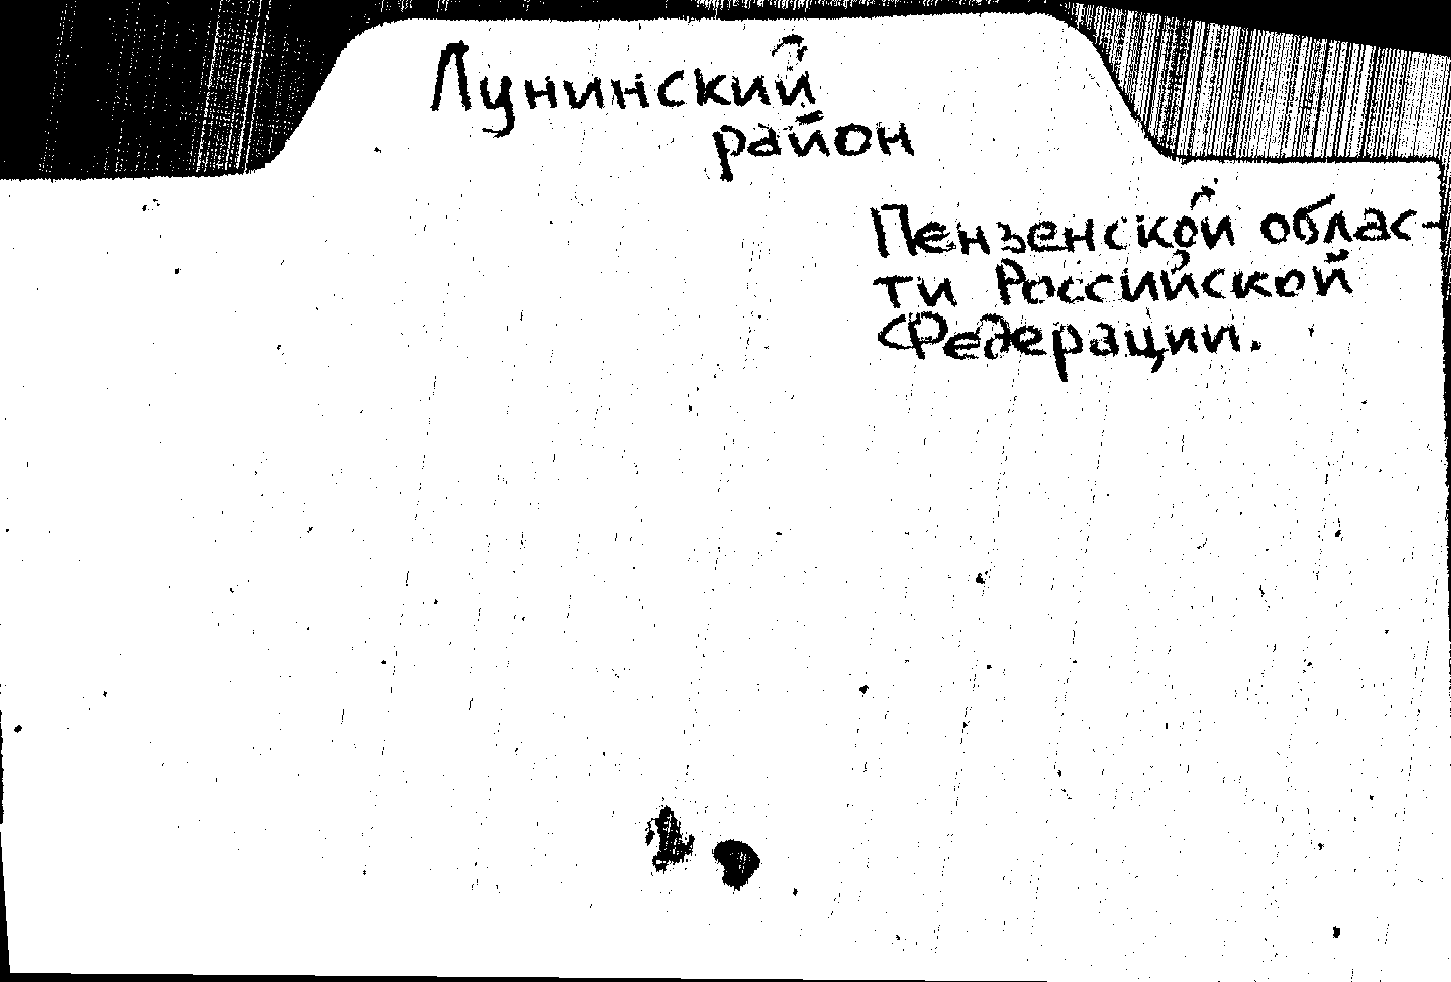 Лунинский
район
Пензенской облас-
ти Российской
Федерации.